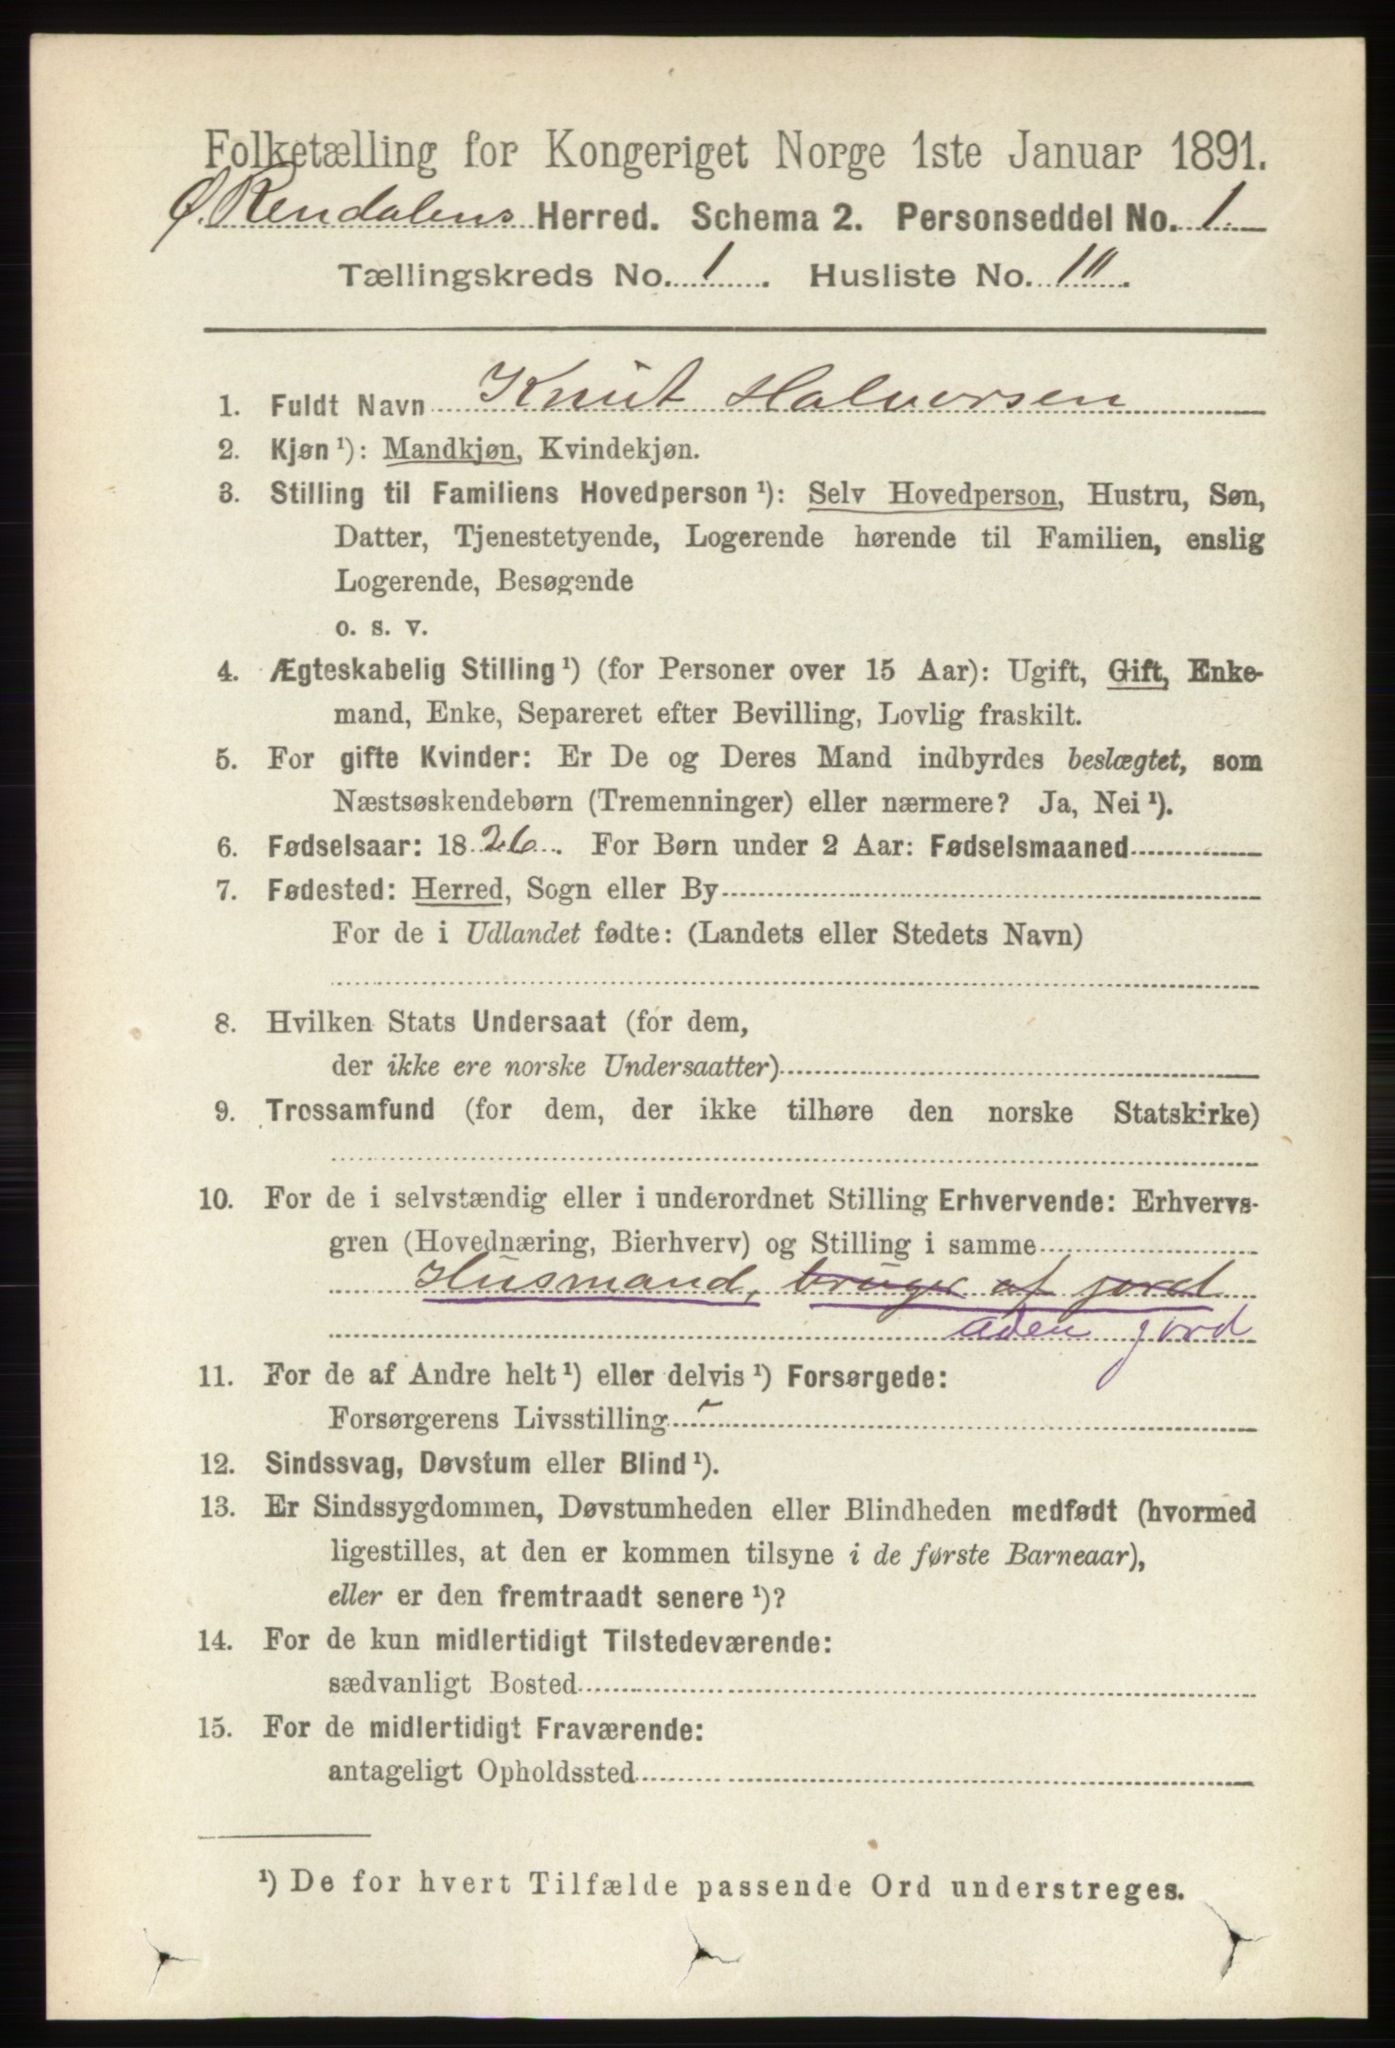 Folketælling for Kongeriget Norge 1ste Januar 1891.
Ø. Rendalens Herred. Schema 2. Personseddel No. 1
Tællingskreds No. 1. Husliste No. 111.
1. Fuldt Navn Knut Halvorsen
2. Kjøn ¹): Mandkjøn, Kvindekjøn.
3. Stilling til Familiens Hovedperson ¹): Selv Hovedperson, Hustru, Søn,
Datter, Tjenestetyende, Logerende hørende til Familien, enslig
Logerende, Besøgende
o. s. v.
4. Ægteskabelig Stilling ¹) (for Personer over 15 Aar): Ugift, Gift, Enke-
mand, Enke, Separeret efter Bevilling, Lovlig fraskilt.
5. For gifte Kvinder: Er De og Deres Mand indbyrdes beslægtet, som
Næstsøskendebørn (Tremenninger) eller nærmere? Ja, Nei ¹).
6. Fødselsaar: 1826. For Børn under 2 Aar: Fødselsmaaned
7. Fødested: Herred, Sogn eller By
For de i Udlandet fødte: (Landets eller Stedets Navn)
8. Hvilken Stats Undersaat (for dem,
der ikke ere norske Undersaatter)
9. Trossamfund (for dem, der ikke tilhøre den norske Statskirke)
10. For de i selvstændig eller i underordnet Stilling Erhvervende: Erhvervs-
gren (Hovednæring, Bierhverv) og Stilling i samme
Husmand, bruger af jord
uden jord
11. For de af Andre helt ¹) eller delvis ¹) Forsørgede:
Forsørgerens Livsstilling
12. Sindssvag, Døvstum eller Blind ¹).
13. Er Sindssygdommen, Døvstumheden eller Blindheden medfødt (hvormed
ligestilles, at den er kommen tilsyne i de første Barneaar),
eller er den fremtraadt senere ¹)?
14. For de kun midlertidigt Tilstedeværende:
sædvanligt Bosted
15. For de midlertidigt Fraværende:
antageligt Opholdssted
¹) De for hvert Tilfælde passende Ord understreges.